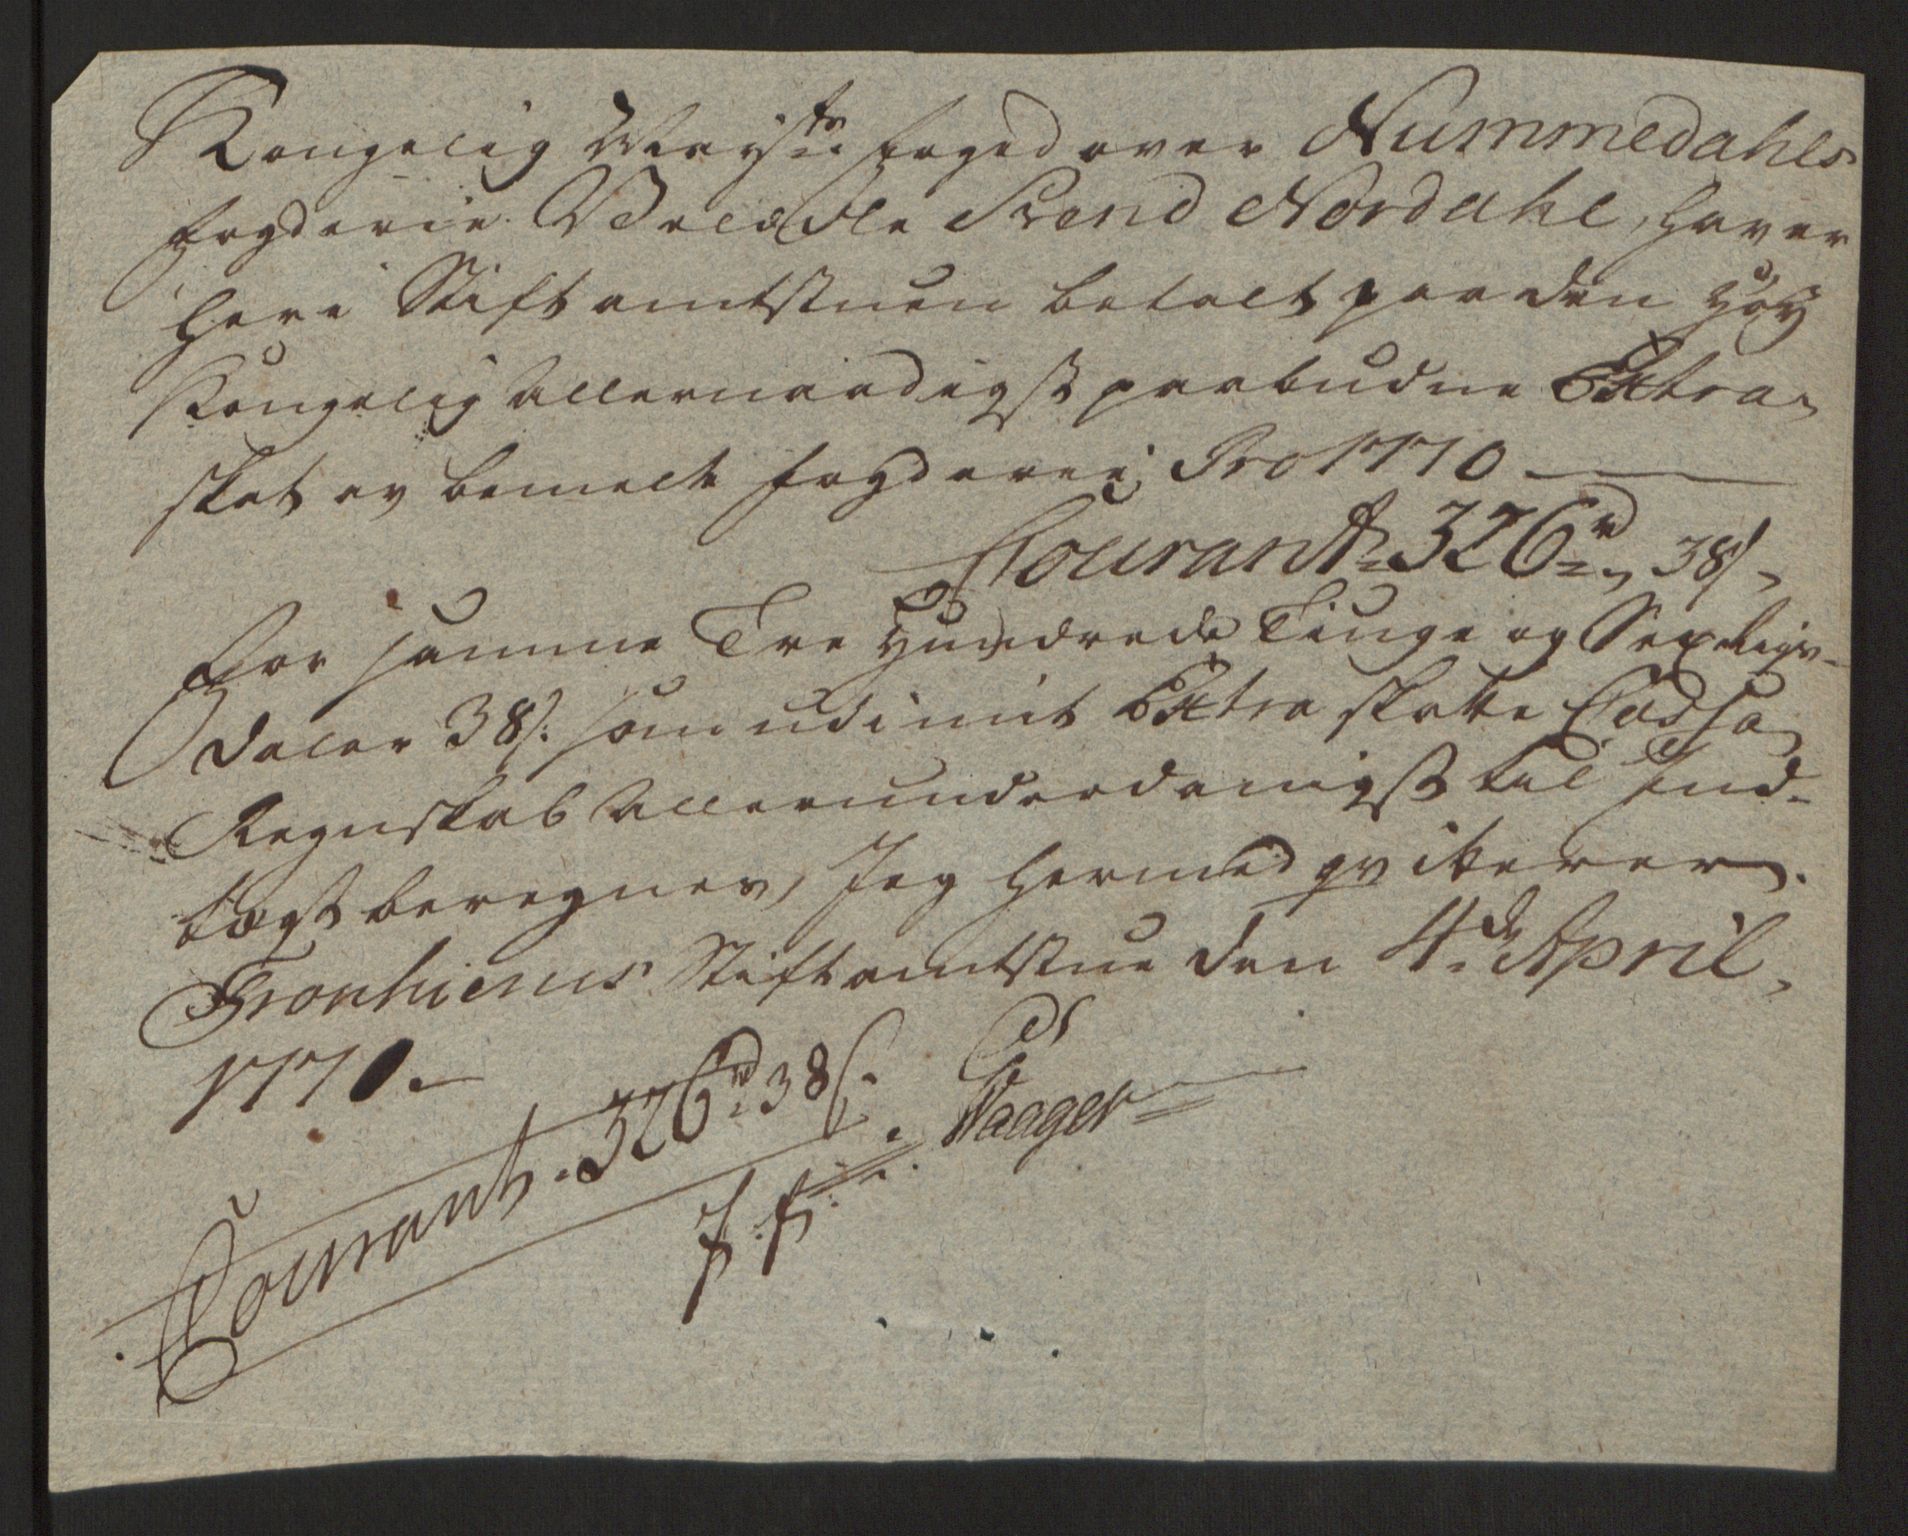 Kongelig Mayts foged over Nummedahls
fogderie Velædle Svend Nordahl, haver
her i Stiftamtstuen betalt paa den høy
Kongelig allernaadigst paabudne Extra
skat av bemelte fogderie, Pro 1770
Courant 326rd 38s
For samme Tre Hundrede Tiuge og Sex Rigs-
daler 38s. som udi mit Extra skatte Cassa
Regnskab allerunderdanigst til Ind-
tægt beregnes, Jeg hermed qvitterer.
Tronhiems Stiftamtstue den 4de April
1770.
Courant. 326rd 38s.
Vaager